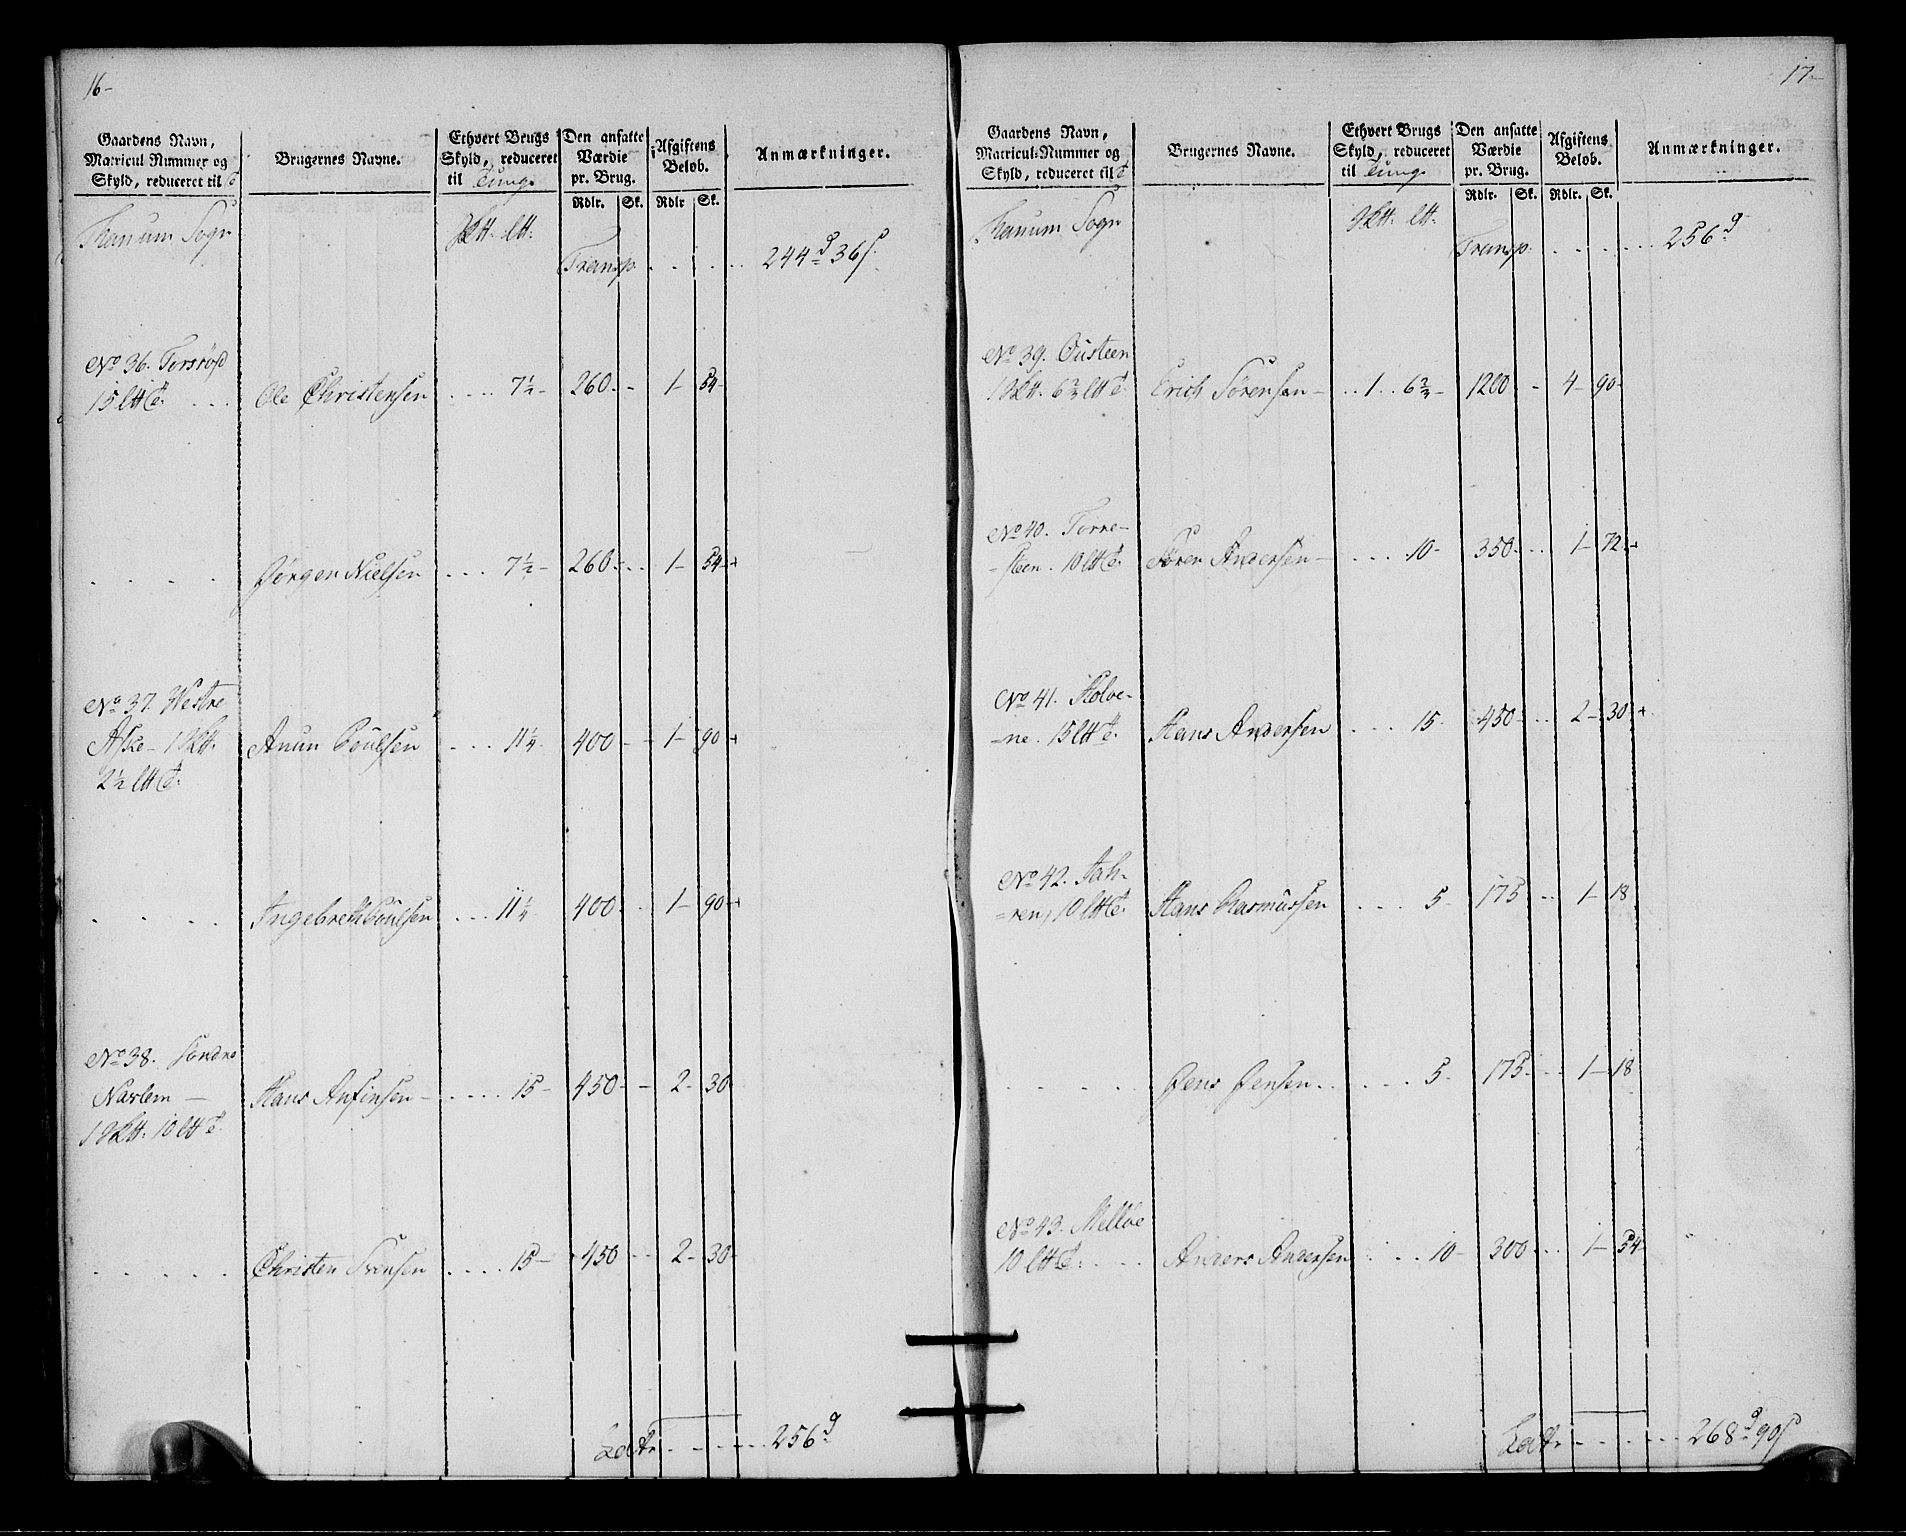 16-
Gaardens Navn, Matricul Nummer og Skyld, reduceret til
Brugernes Navne.
Ethvert Brugs Skyld, reduceret til Tunge
Den ansatte Værdie pr. Brug.
Afgiftens Beløb.
Anmærkninger.
Rdlr. Sk. Rdlr Sk.
Tranum Sogn
Transp. . . . . . 244 d 36 s
No 36. Torsrød
15 ltt . . . Ole Christensen . . . . 7½ - 260. - 1 - 54 -
. . . . Jørgen Nielsen . . . . 7½ - 260 - . . 1 - 54 - +
No 37. Westre
Aske - 1 Sktt. Anun Poulsen . . . 11¼ 400 - - 1 - 90 - +
2½ ltt
. . . . Ingebreth Poulsen . . . 11¼ 400 - . 1 - 90 - +
No 38. Søndre
Narlem - Hans Anfinsen - . . . . 15 - 450 - - 2 - 30
1 Sktt. 10 ltt
. . . . Christen Svensen . . . . 15 - 450 - - 2 - 30 -
Latr . . . . . 256 d
17-
Gaardens Navn, Matricul-Nummer og Skyld, reduceret til
Brugernes Navne.
Ethvert Brugs Skyld, reduceret til Tunge
Den ansatte Værdie pr. Brug.
Afgiftens Beløb.
Anmærkninger.
Rdlr. Sk. Rdlr. Sk.
Tranum Sogn
Transp. . . . . . 256 d
No 39. Ousteen
1 Sktt. 6⅔ ltt Erich Sørensen - . . 1 . . 6⅔ - 1200 - 4 - 90 -
No 40. Torre-
=steen. 10 ltt Søren Andersen - . . . 10 - 350 - . . 1 - 72 - +
No 41. Holve-
=ne. 15 ltt Hans Andersen . . . 15 - 450 - . . 2 - 30 - +
No 42. Aah-
=ren, 10 ltt Hans Rasmussen . . . 5 - 175 - . . 1 - 18
. . . . Jens Jensen . . . . . . 5 - 175 - . . 1 - 18
No 43. Melløe
10 ltt . . . . Anders Andersen . . . 10 - 300 - . . 1 - 54 -
Latr . . . . . 268 d 90 s